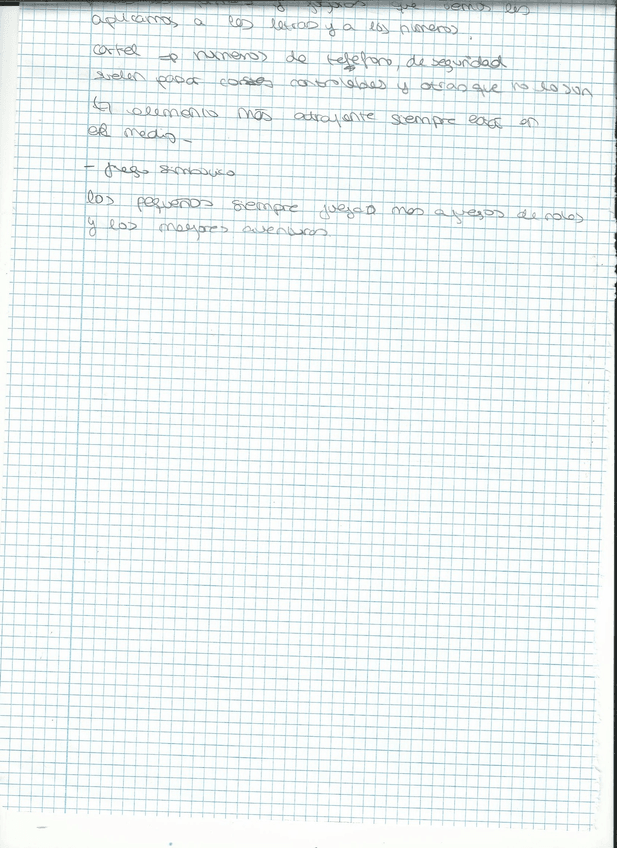 y que vemos les
aplicamos a las letras y a los números.
cartel → números de teléfono, de seguridad
suelen pasar cosas controlables y otras que no lo son
El elemento más atrayente siempre está en
el medio.
- juego simbólico
los pequeños siempre juegan mas a juegos de roles
y los mayores aventuras